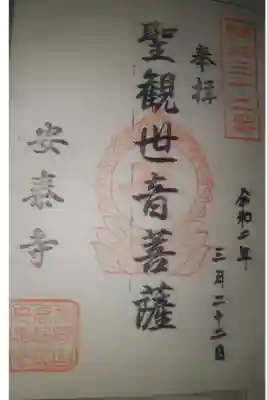 奉拝
令和二年
三月二十二日
聖観世音菩薩
安泰寺